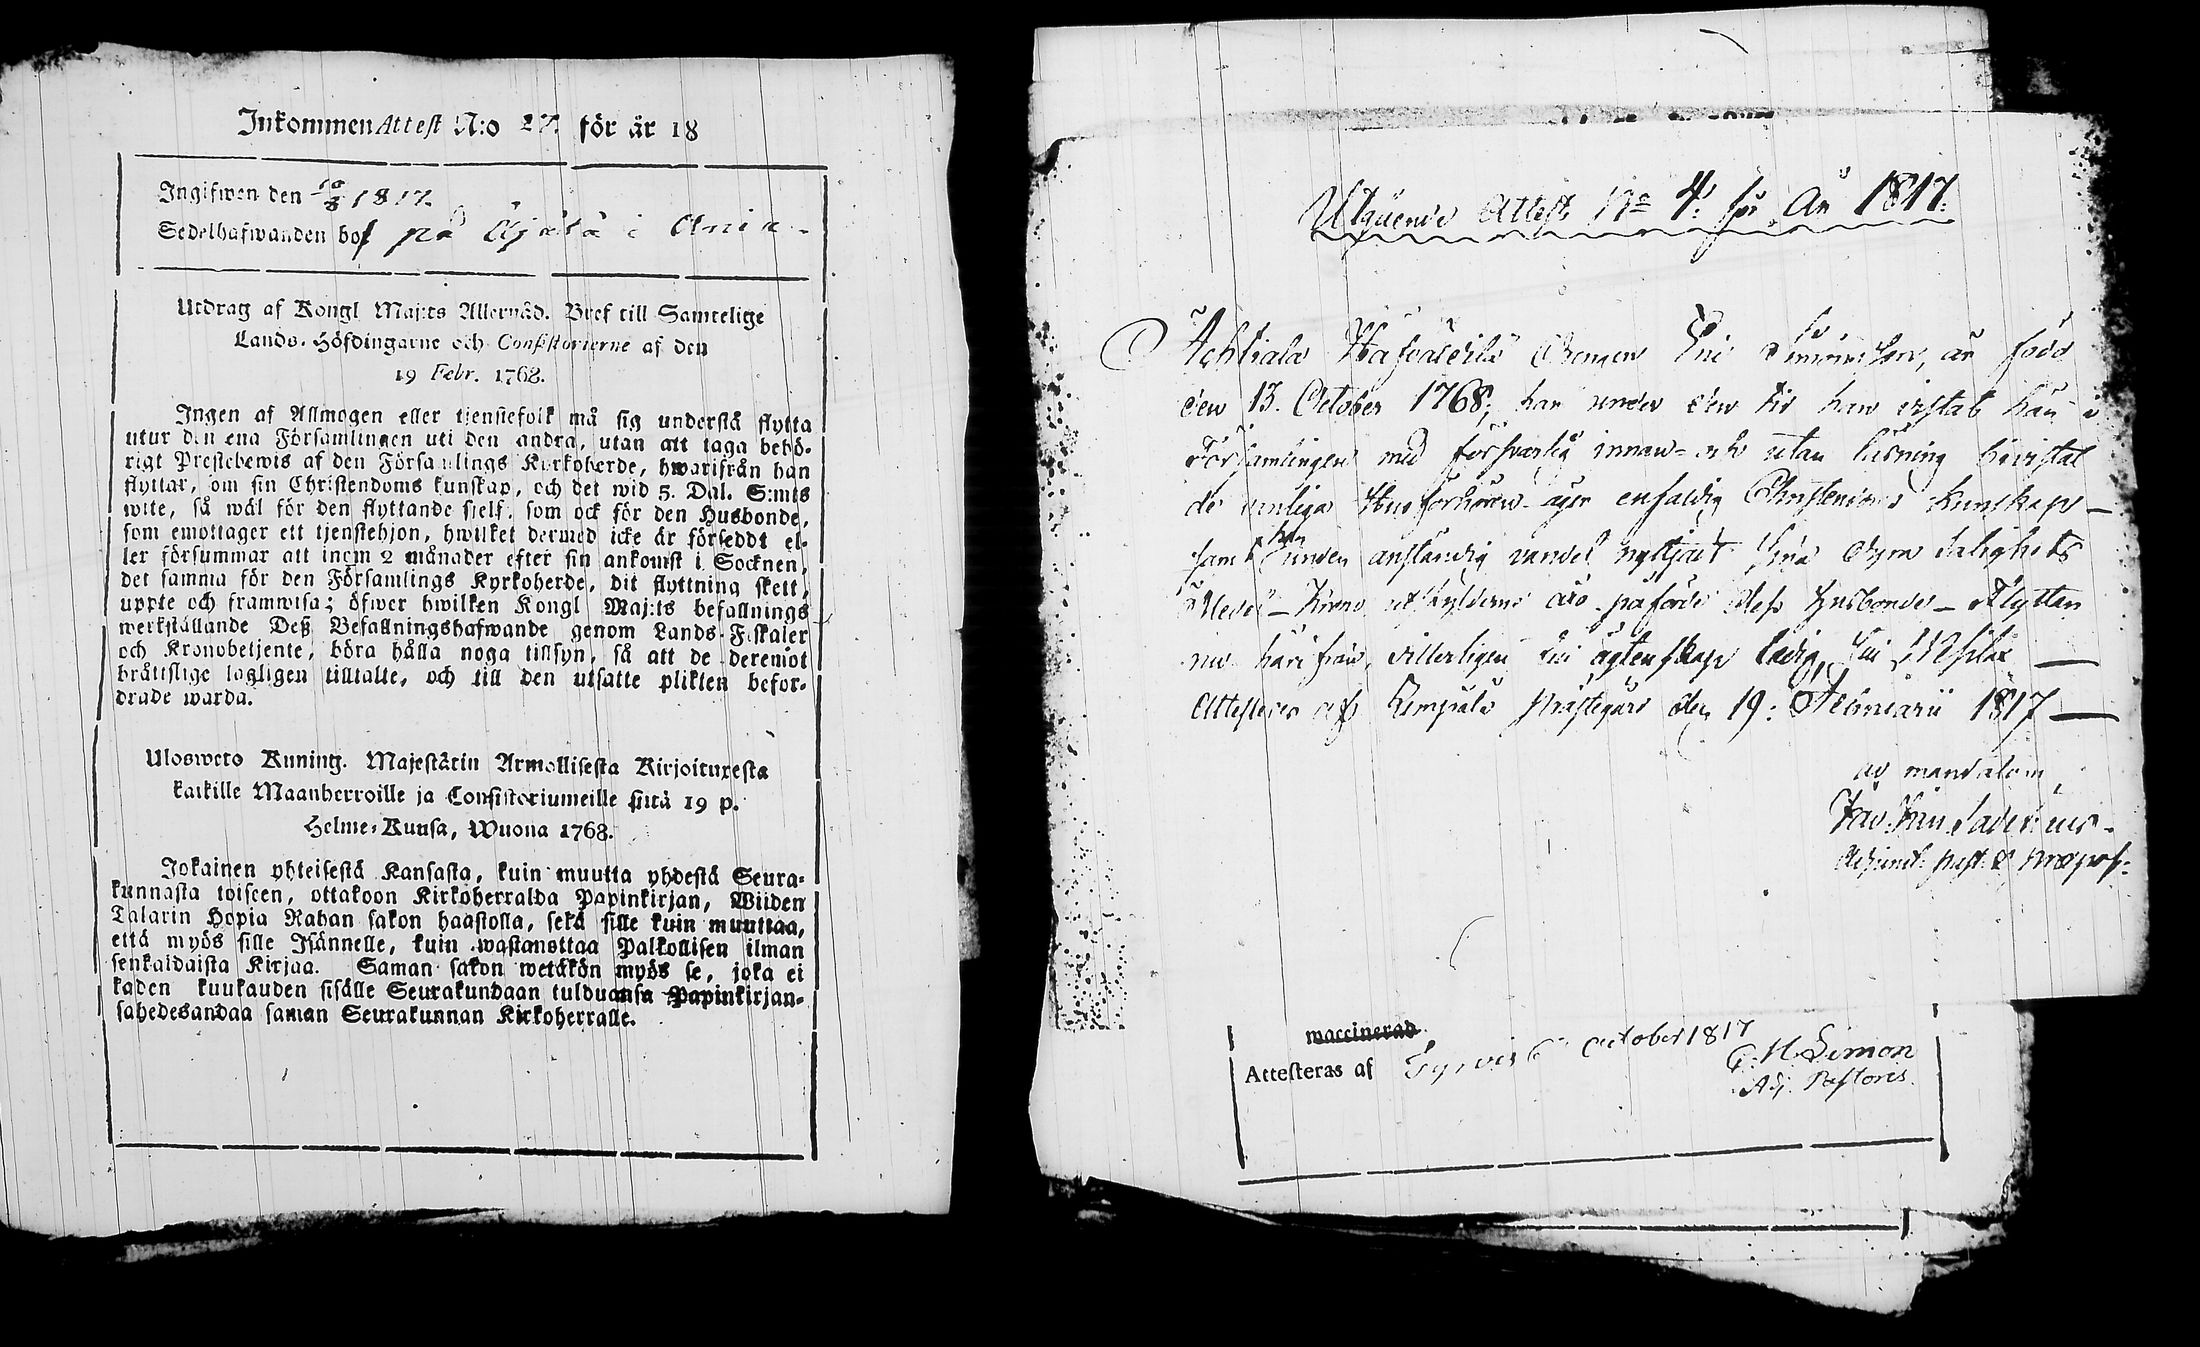 Inkommen Attest N:o 27. för år 18
Ingifwen den 10/8 1817.
Sedelhafwanden bor på Äjälä i Ania.
Utdrag af Kongl Maj:ts Allernåd. Bref till Samtelige
Lands-Höfdingarne och Consistorierne af den
19 Febr. 1768.
Ingen af Allmogen eller tjenstefolk må sig understå flytta
utur den ena Församlingen uti den andra, utan att taga behö-
rigt Prestebewis af den Församlings Kyrkoherde, hwarifrån han
flyttar, om sin Christendoms kunskap, och det wid 5. Dal. S:mts
wite, så wäl för den flyttande sjelf, som ock för den Husbonde,
som emottager ett tjenstehjon, hwilket dermed icke är försedt el-
ler försummar att inom 2 månader efter sin ankomst i Socknen,
det samma för den Församlings Kyrkoherde, dit flyttning skett,
uppte och framwisa; öfwer hwilken Kongl Maj:ts befallnings
werkställande Deß Befallningshafwande genom Lands-Fiskaler
och Kronobetjente, böra hålla noga tillsyn, så att de deremot
bråttslige lagligen tilltalte, och till den utsatte plikten befor-
drade warda.
Ulosweto Kuning. Majestätin Armollisesta Kirjoituxesta
kaikille Maanherroille ja Consistoriumeille siitä 19 p.
Helme-Kuusa, Wuona 1768.
Jokainen yhteisestä Kansasta, kuin muutta yhdestä Seura-
kunnasta toiseen, ottakoon Kirkoherralda Papinkirjan, Wiiden
Talarin Hopia Rahan sakon haastolla, sekä sille kuin muuttaa,
että myös sille Isännelle, kuin wastanottaa Palkollisen ilman
senkaldaista Kirjaa. Saman sakon wetäkön myös se, joka ei
kaden kuukauden sisälle Seurakundaan tulduansa Papinkirjan-
sahedesandaa saman Seurakunnan Kirkoherralle.
Utgående Attest No 4: för År 1817.
Achtiala Drengen är född
den 13. October 1768; har under den tid han vistats här i
Församlingen med försvarlig innan- och utan läsning bevistat
de vanliga Husförhören äger enfaldig Christendoms kunskap —
samt har under anständig vandel nyttjat sina dyra salighets
Medel - utskylderne äro påförde dess Husbonde - Flyttar
nu härifrån, till ägtenskap ledig, —
Attesteras af Lempälä Prästegård den 19: Februarii 1817 —
ad mandatum
Adjunct. Past. & Præpos:
waccinerad
Attesteras af Tyrvis 6 October 1817
G. H. Simon
Adj. Pastoris.